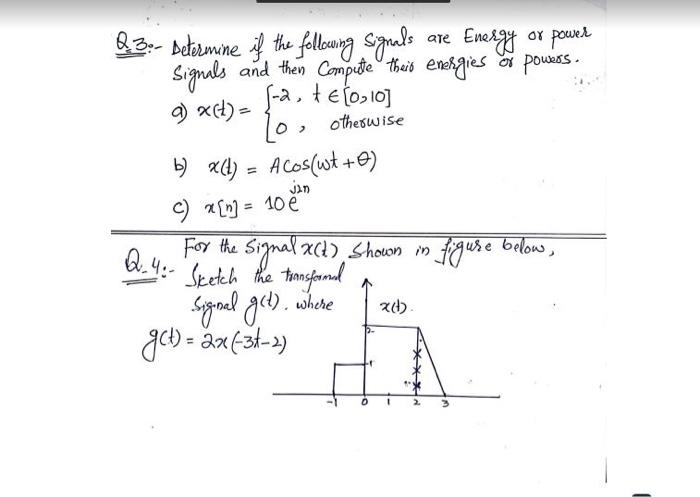 Q.3:- Determine if the following signals are Energy or power
Signals and then Compute their energies or powers.
a) x(t) = { -2, t ∈ [0,10]
0, otherwise
b) x(t) = A cos(wt + θ)
c) x[n] = 10 e^{j2n}
Q.4:- For the Signal x(t) shown in figure below,
Sketch the transformed
Signal g(t). where
x(t).
g(t) = 2x(-3t-2)
2
1
-1 0 1 2 3